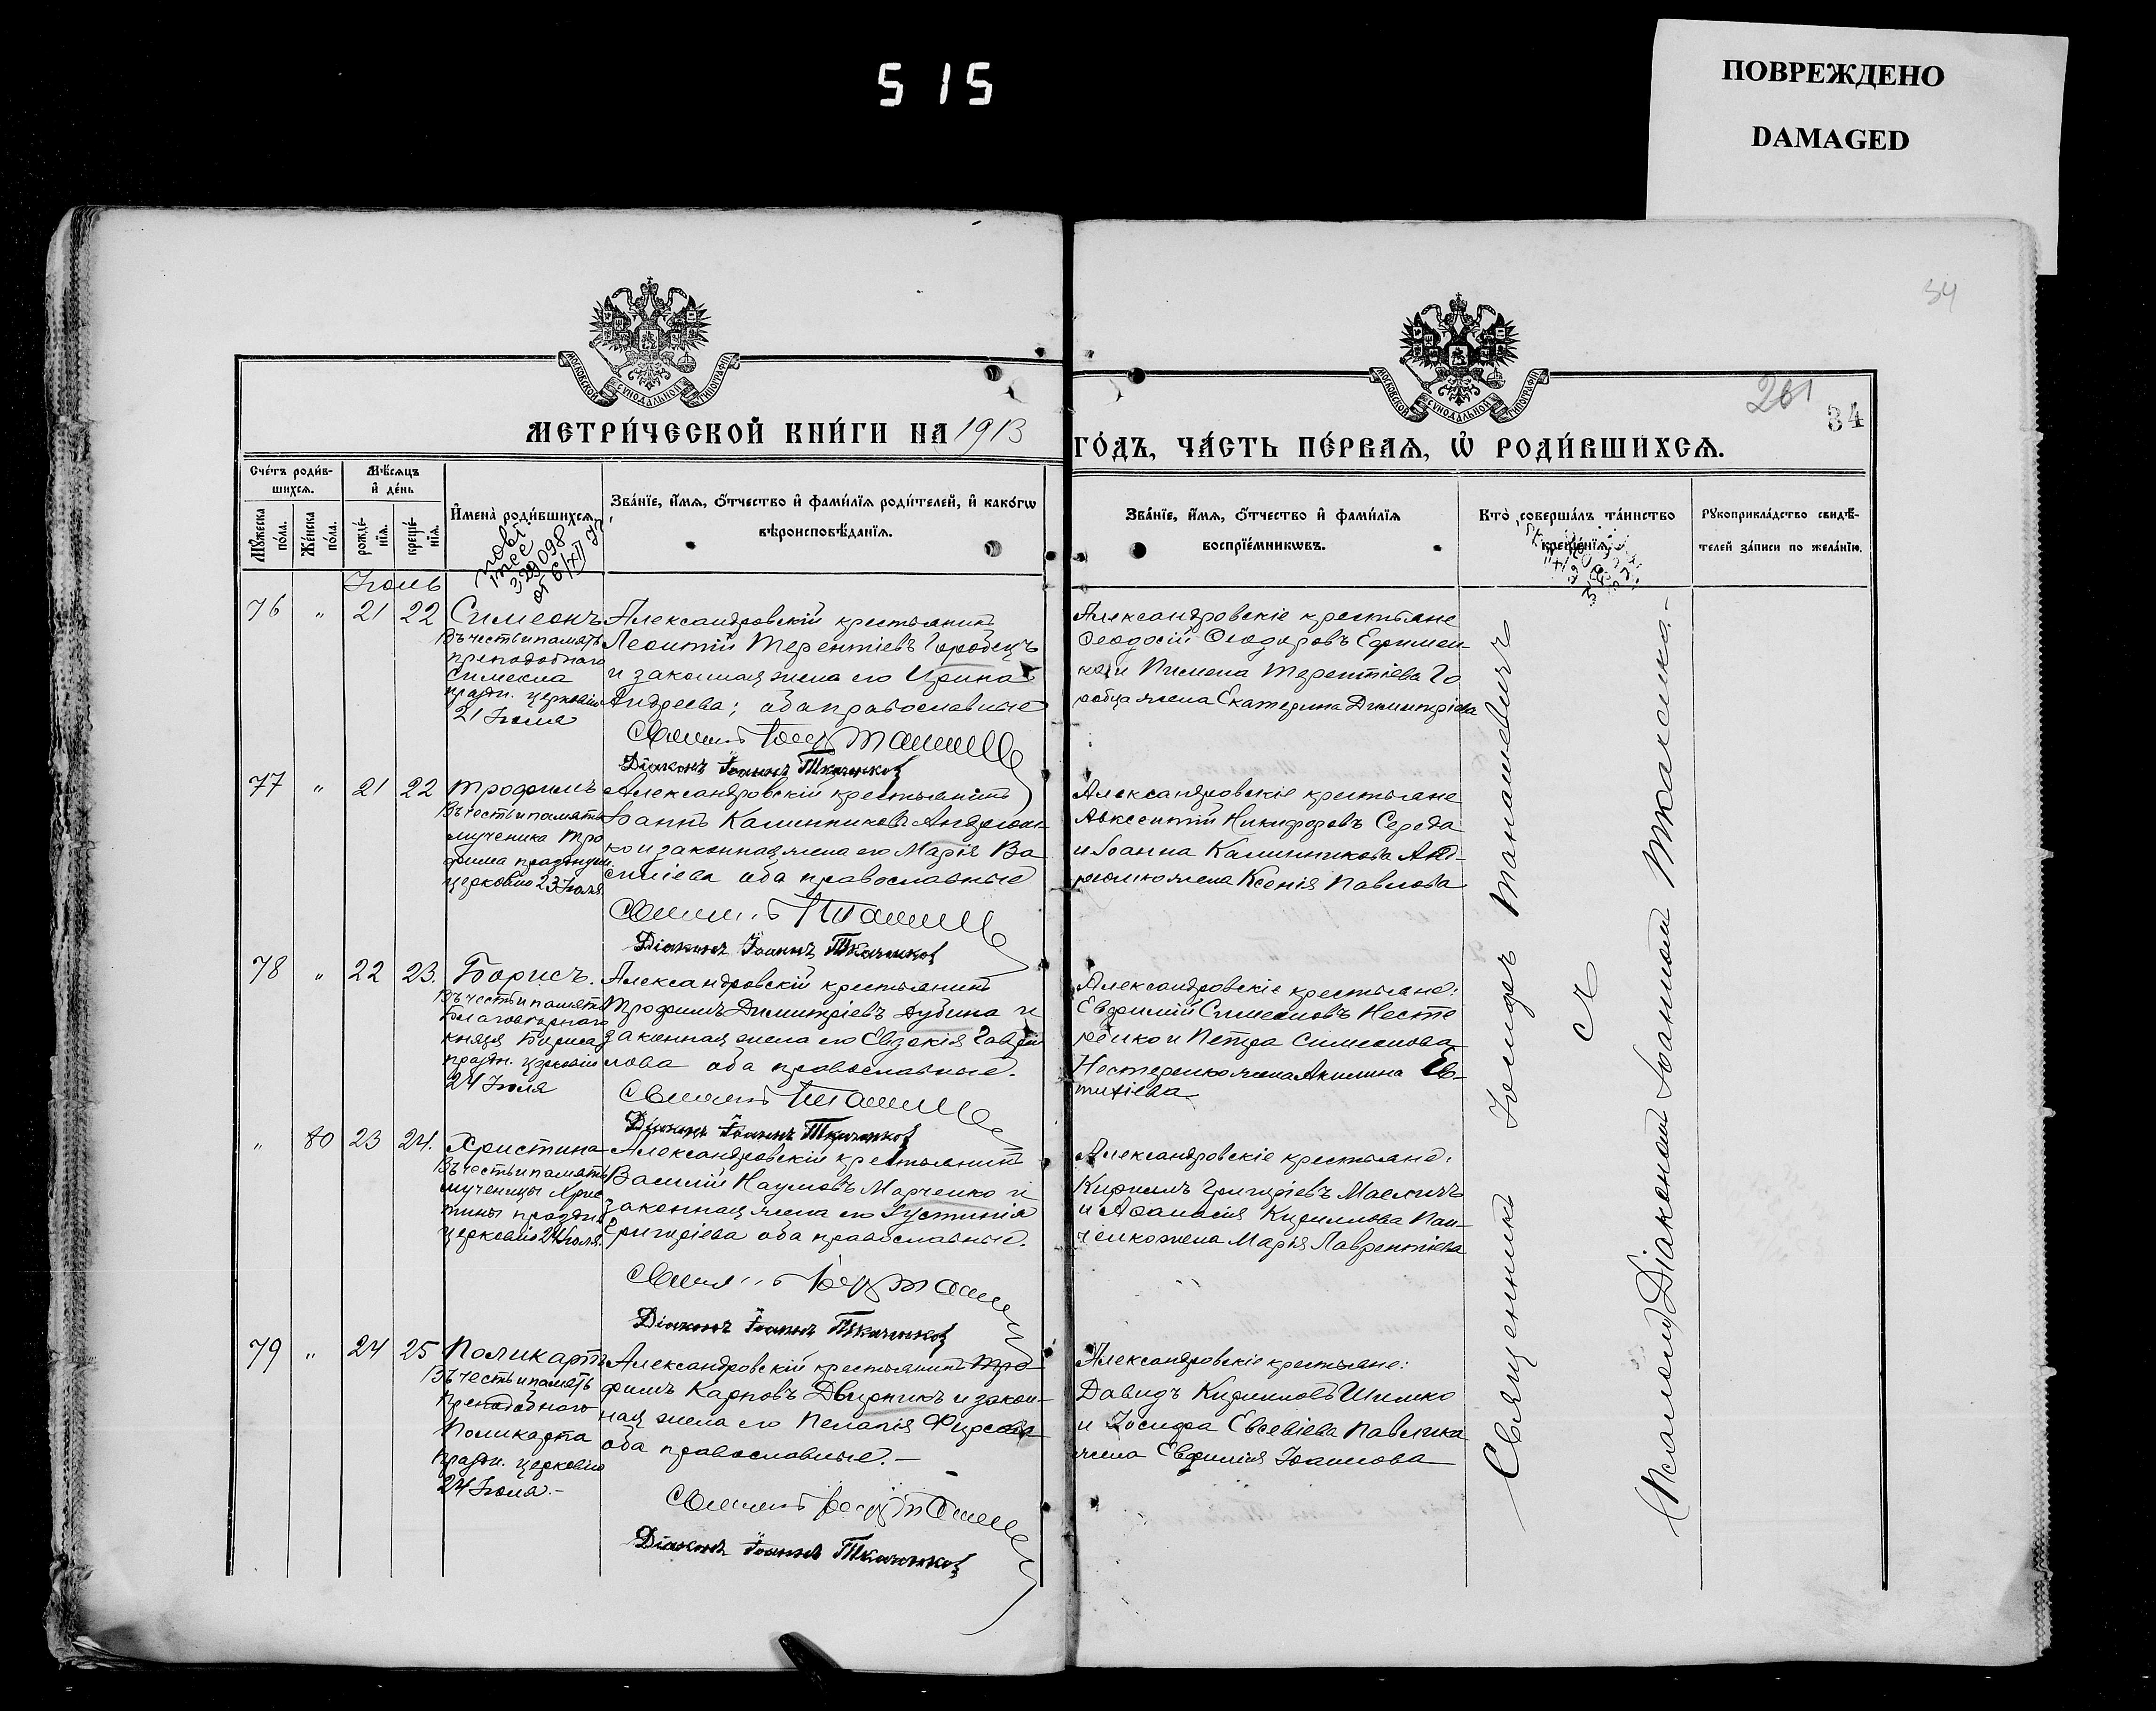 515
ПОВРЕЖДЕНО
DAMAGED
34
МОСКОВСКОЙ СѴНОДАЛЬНОЙ ТИПОГРАФІИ
МОСКОВСКОЙ СѴНОДАЛЬНОЙ ТИПОГРАФІИ
261
34
МЕТРИ́ЧЕСКОЙ КНИ́ГИ НА 1913
ГО́ДЪ, ЧА́СТЬ ПЕ́РВАѦ, Ѿ РОДИ́ВШИХСѦ.
Сче́тъ роди́в-
шихсѧ.
Мꙋ́жеска
по́ла.
Же́нска
по́ла.
Мѣ́сѧцъ
и҆ де́нь
рожде́-
нїѧ.
креще́-
нїѧ.
И҆мена̀ роди́вшихсѧ.
Зва́нїе, и҆́мѧ, ѻ҆́тчество и҆ фами́лїѧ роди́телей, и҆ како́гѡ
вѣроисповѣ́данїѧ.
Зва́нїе, и҆́мѧ, ѻ҆́тчество и҆ фами́лїѧ
воспрїе́мникѡвъ.
Кто̀ соверша́лъ та́инство
креще́нїѧ.
Рꙋкоприкла́дство свидѣ́-
телей за́писи по жела́нїю.
Іюль
76 " 21 22 Симеонъ
Въ честь и память
преподобнаго
Симеона
праздн. церковію
21 Іюля
Александровскій крестьянинъ
Леонтій Терентіевъ Горобецъ
и законная жена его Ирина
Андреева; оба православные
Діаконъ Іоаннъ Ткаченко
Александровскіе крестьяне
Ѳеодосій Ѳеодоровъ Ефимен-
ко и Пимена Терентіева Го
робца жена Екатерина Димитріева
77 " 21 22 Трофимъ
Въ честь и память
мученика Тро
фима празднуем.
церковію 23 Іюля
Александровскій крестьянинъ
Іоаннъ Калинниковъ Андрюшен-
ко и законная жена его Марія Ва
силіева оба православные
Діаконъ Іоаннъ Ткаченко
Александровскіе крестьяне
Авксентій Никифоровъ Середа
и Іоанна Калинникова Анд-
жена Ксенія Павлова
78 " 22 23. Борисъ.
Въ честь и память
Благовѣрнаго
князя Бориса
праздн. церковію
24 Іюля
Александровскій крестьянинъ
Трофимъ Димитріевъ Дубина и
законная жена его Евдокія Гаврі
лова оба православные.
Діаконъ Іоаннъ Ткаченко
Александровскіе крестьяне:
Евфимій Симеоновъ Несте
ренко и Петра Симеонова
Нестеренко жена Акилина Ев-
тихіева
" 80 23 24. Христина
Въ честь и память
мученицы Хрис
тины праздн.
церковію 24 Іюля.
Александровскій крестьянинъ
Василій Наумовъ Марченко и
законная жена его Іустинія
Григоріева оба православные.
Діаконъ Іоаннъ Ткаченко
Александровскіе крестьяне:
Кириллъ Григоріевъ
и Аѳанасія Кириллова Пан-
ченко жена Марія Лаврентіева
79 " 24 25 Поликарпъ
Въ честь и память
Преподобнаго
Поликарпа
праздн. церковію
24 Іюля.-
Александровскій крестьянинъ Тро-
фимъ Карповъ Дворникъ и закон-
ная жена его Пелагія Фирсова
оба православные.-
Діаконъ Іоаннъ Ткаченко
Александровскіе крестьяне:
Давидъ Кирилловъ Шинко
и Іосифа Евсевіева Павлика
жена Евфимія Іоаннова
Священникъ Іосифъ Манашевичъ
съ
Псаломщ. Діакономъ Іоанномъ Ткаченко.-